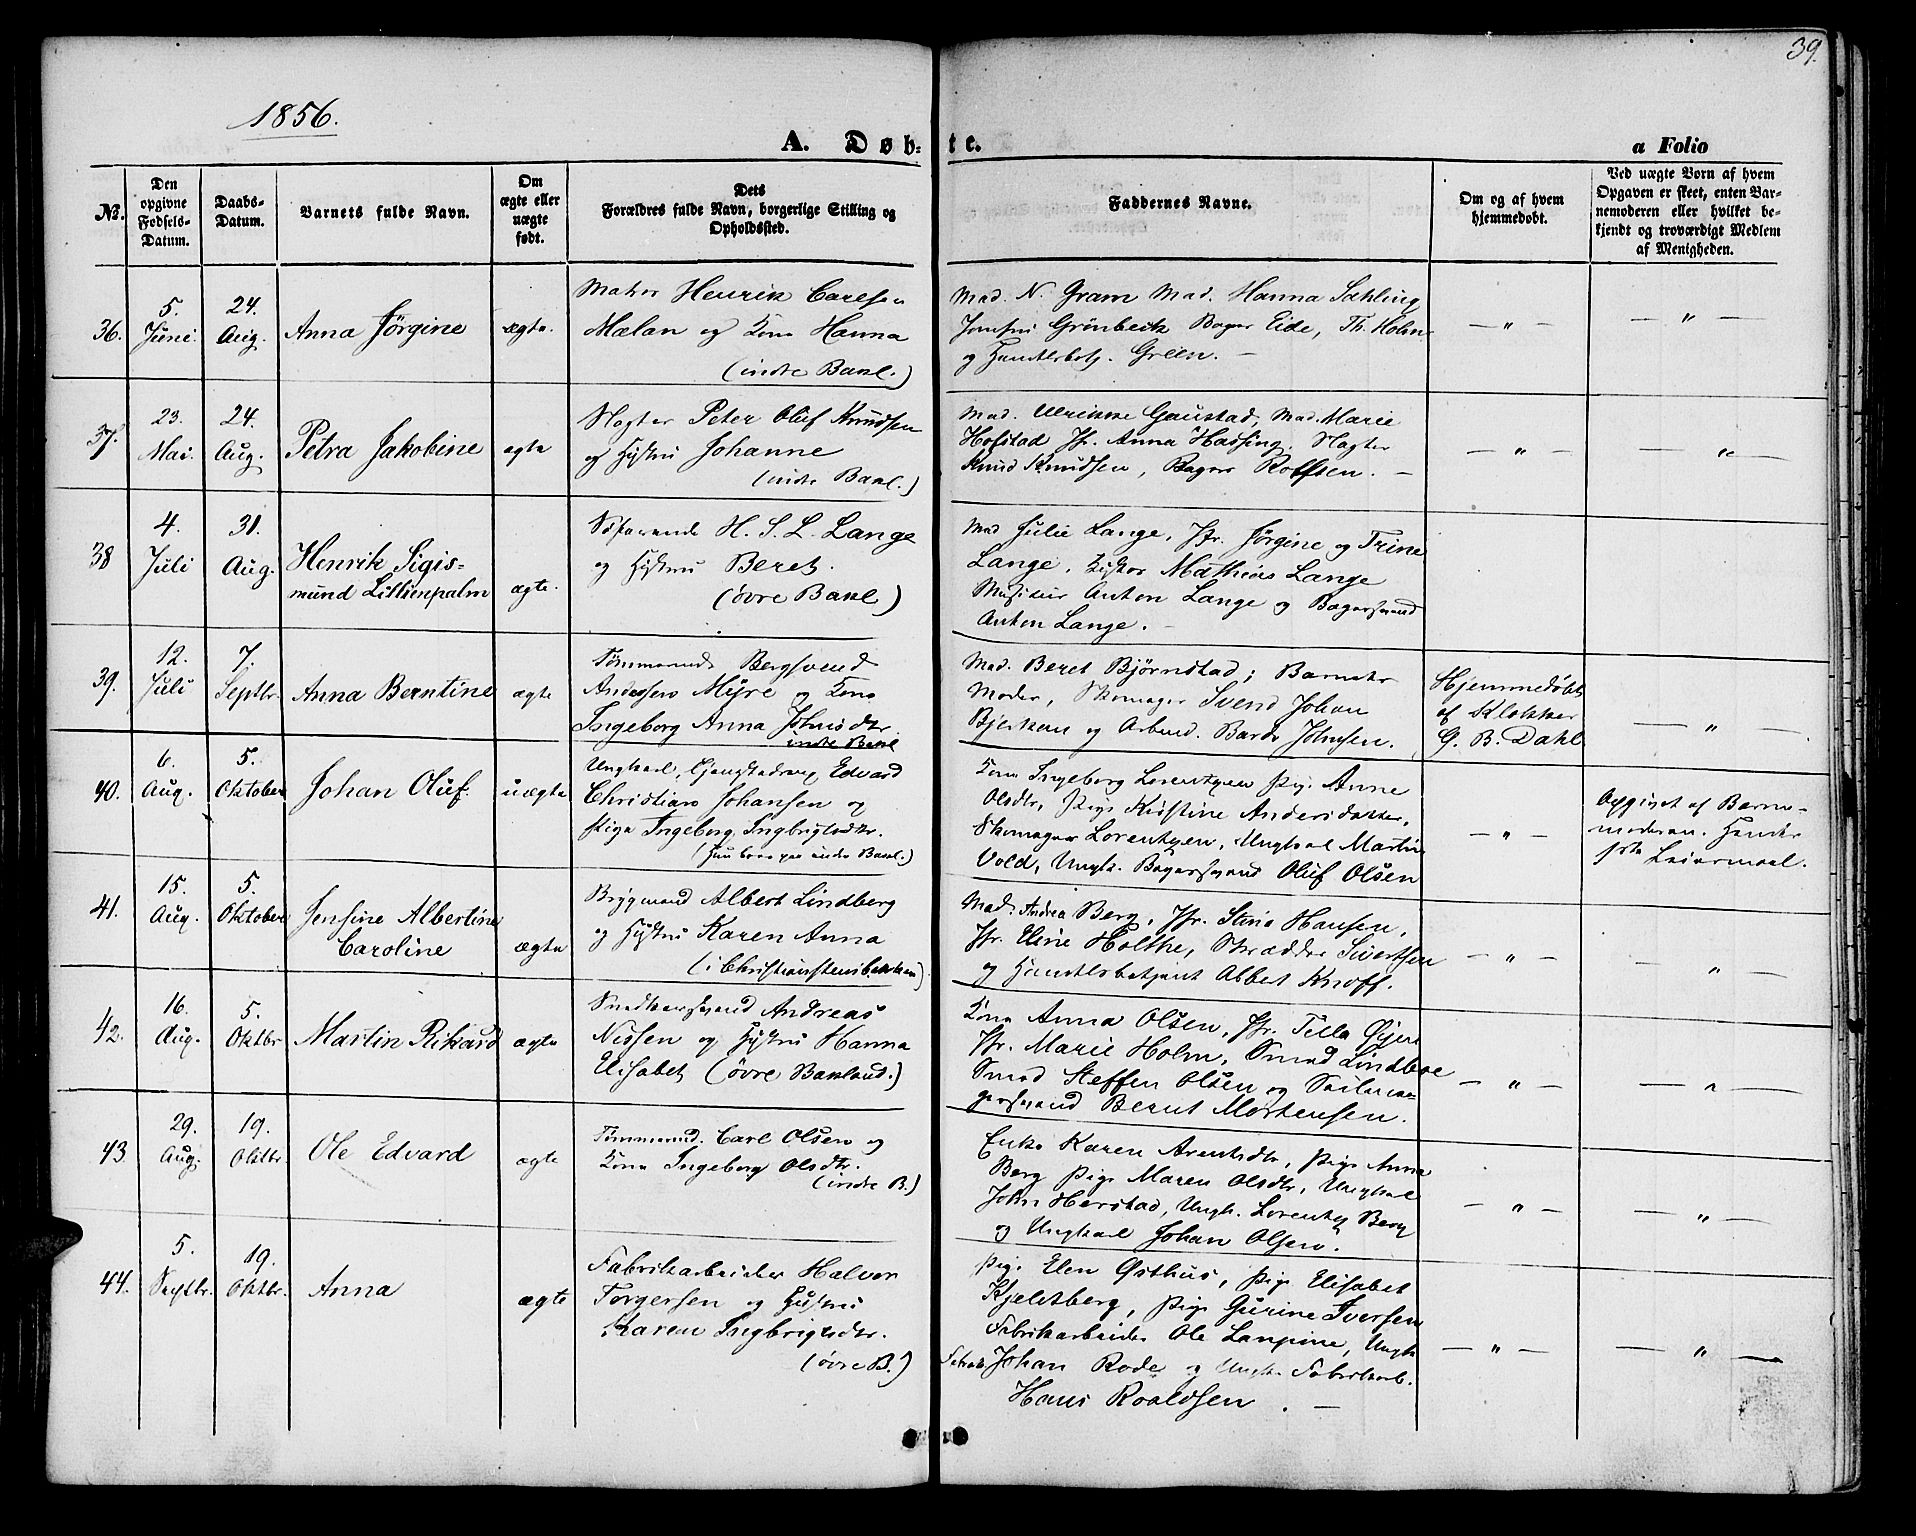 39.
1856.
A. Døb-
te.
a Folio
No.
Den opgivne Fødsels-Datum.
Daabs-Datum.
Barnets fulde Navn.
Om ægte eller uægte født.
Dets Forældres fulde Navn, borgerlige Stilling og Opholdssted.
Faddernes Navne.
Om og af hvem hjemmedøbt.
Ved uægte Børn af hvem Opgaven er skeet, enten Barnemoderen eller hvilket bekjendt og troværdigt Medlem af Menigheden.
36.
5. Juni.
24. Aug.
Anna Jörgine
ægte.
Henrik Carlsen
Mælan og Kone Hanna
(indre Bakl.)
Mad. N. Gram Mad. Hanna Sahling
Jomfru Grönbeck Bager Eide, Th. Holm
og Handelsbetj. Green. —
— " —
— " —
37.
23. Mai.
24. Aug.
Petra Jakobine
ægte
Slagter Peter Oluf Knudsen
og Hustru Johanne
(indre Bakl.)
Mad. Ulrikke Gaustad, Mad. Marie
Hofstad Jfr. Anna Hassing. Slagter
Knud Knudsen, Bager Rolfsen. —
— " —
— " —
38
4. Juli
31. Aug.
Henrik Sigis-
mund Lillienpalm
ægte.
H. S. L. Lange
og Hustru Beret.
(øvre Bakl)
Mad Julie Lange, Jfr. Jörgine og Trine
Lange, Mathias Lange
Musikus Anton Lange og Bagersvend
Anton Lange. —
39.
12. Juli
7. Septbr.
Anna Berntine
ægte
Tömmermd. Bergsvend
Andersen Myre og Kone
Ingeborg Anna Johnsdtr.
indre Bakl
Mad. Beret Björnstad; Barnets
Moder, Skomager Svend Johan
Bjerkan og Arbmd. Johnsen.
Hjemmedöbt
af Klokker
G. B. Dahl
— " —
40.
6. Aug.
5. Oktober
Johan Oluf.
uægte
Ungkarl, Edvard
Christian Johansen og
Pige Ingeborg Ingbrigtsdtr.
(Hun boer paa indre Bakl.)
Kone Ingeborg Lorentzen Pig. Anne
Olsdtr, Pige Kristine Andersdatter,
Skomager Lorentzen, Ungkarl Martin
Vold, Ungk. Bagersvend Oluf Olsen
— " —
Opgivet af Barne-
moderen. Hendes
1ste Leiermaal.
41.
15. Aug.
5. Oktober
Jensine Albertine
Caroline
ægte
Brygmand Albert Lindberg
og Hustru Karen Anna
(i Christianstensbakken)
Mad. Andrea Berg, Jfr. Stine Hansen,
Jfr. Eline Holthe, Skrædder Sivertsen
og Handelsbetjent Albert Knoff.
— " —
— " —
42.
16. Aug.
5. Oktbr
Martin Rikard
ægte
Andreas
Nissen og Hustru Hanna
Elisabet (øvre Bakland.)
Kone Anna Olsen, Jfr. Tilla
Jfr. Marie Holm, Smed Lindboe
Smed Steffen Olsen og Seilma-
gersvend Bernt Mortensen.
— " —
— " —
43
29. Aug.
19. Oktbr.
Ole Edvard
ægte
Tømmermd. Carl Olsen og
Kone Ingeborg Olsdtr.
(indre B.)
Enke Karen Arentsdtr, Pige Anne
Berg Pige Maren Olsdtr, Ungkarl
John Herstad, Ungk. Lorentz Berg
og Ungkarl Johan Olsen.
— " —
— " —
44.
5. Septbr.
19. Oktbr.
Anna
ægte
Fabrikarbeider Halvor
Torgersen og Hustru
Karen Ingbrigtsdtr.
(øvre B.)
Pige Elen Østhus, Pige Elisabet
Kjeldsberg, Pige Gurine Iversen
Fabrikarbeider Ole Lanpine, Ungk.
Fabrikarb Johan Rode og Ungk. Fabrikarb.
Hans Roaldsen. —
— " —
— " —